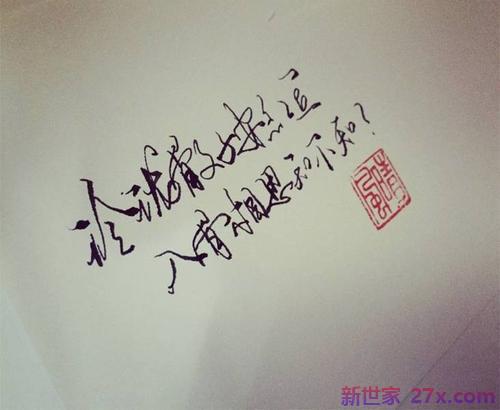 玲珑骰子安红豆
入骨相思知不知?
新世家 27x.com